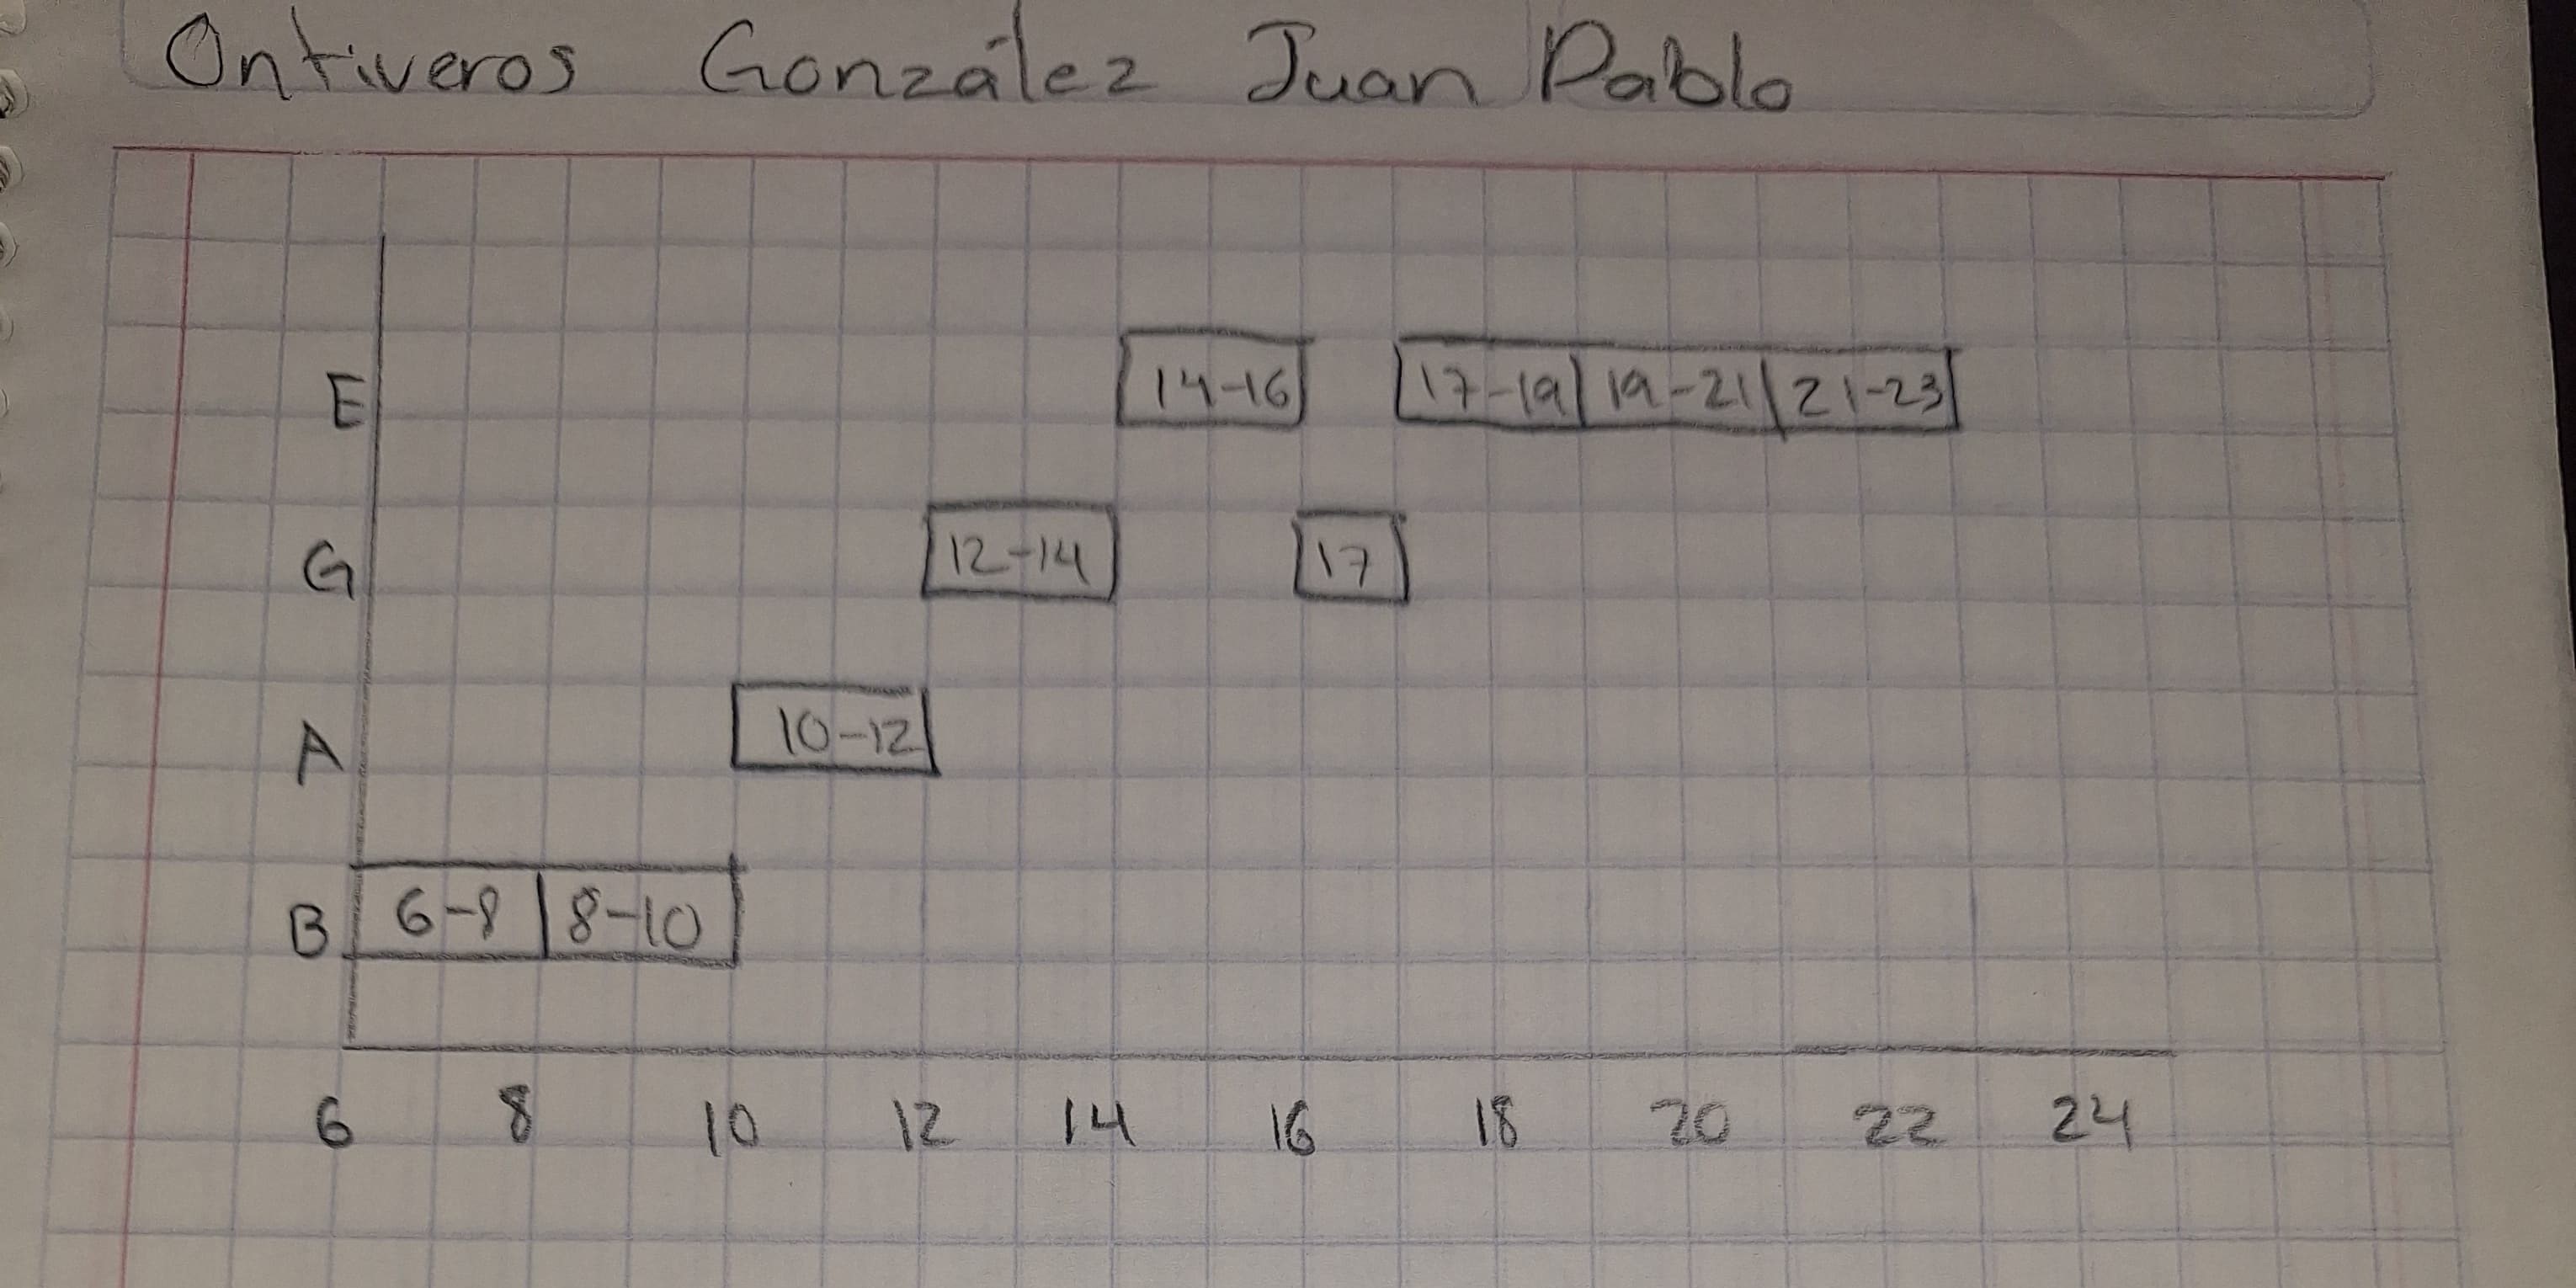 Ontiveros González Juan Pablo
E 14-16 17-19 19-21 21-23
G 12-14 17
A 10-12
B 6-8 8-10
6 8 10 12 14 16 18 20 22 24